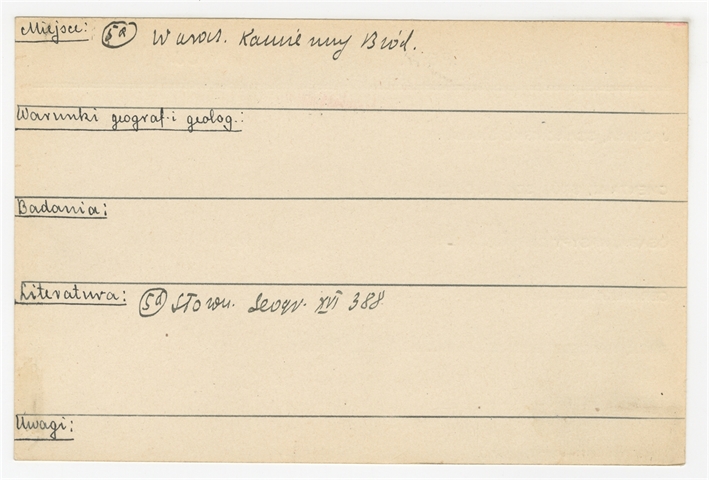 Miejsce: 5a W uroc. Kamienny Bród.
Warunki geograf. i geolog.:
Badania:
Literatura: 5a Słown. Geogr. XVI 388
Uwagi: